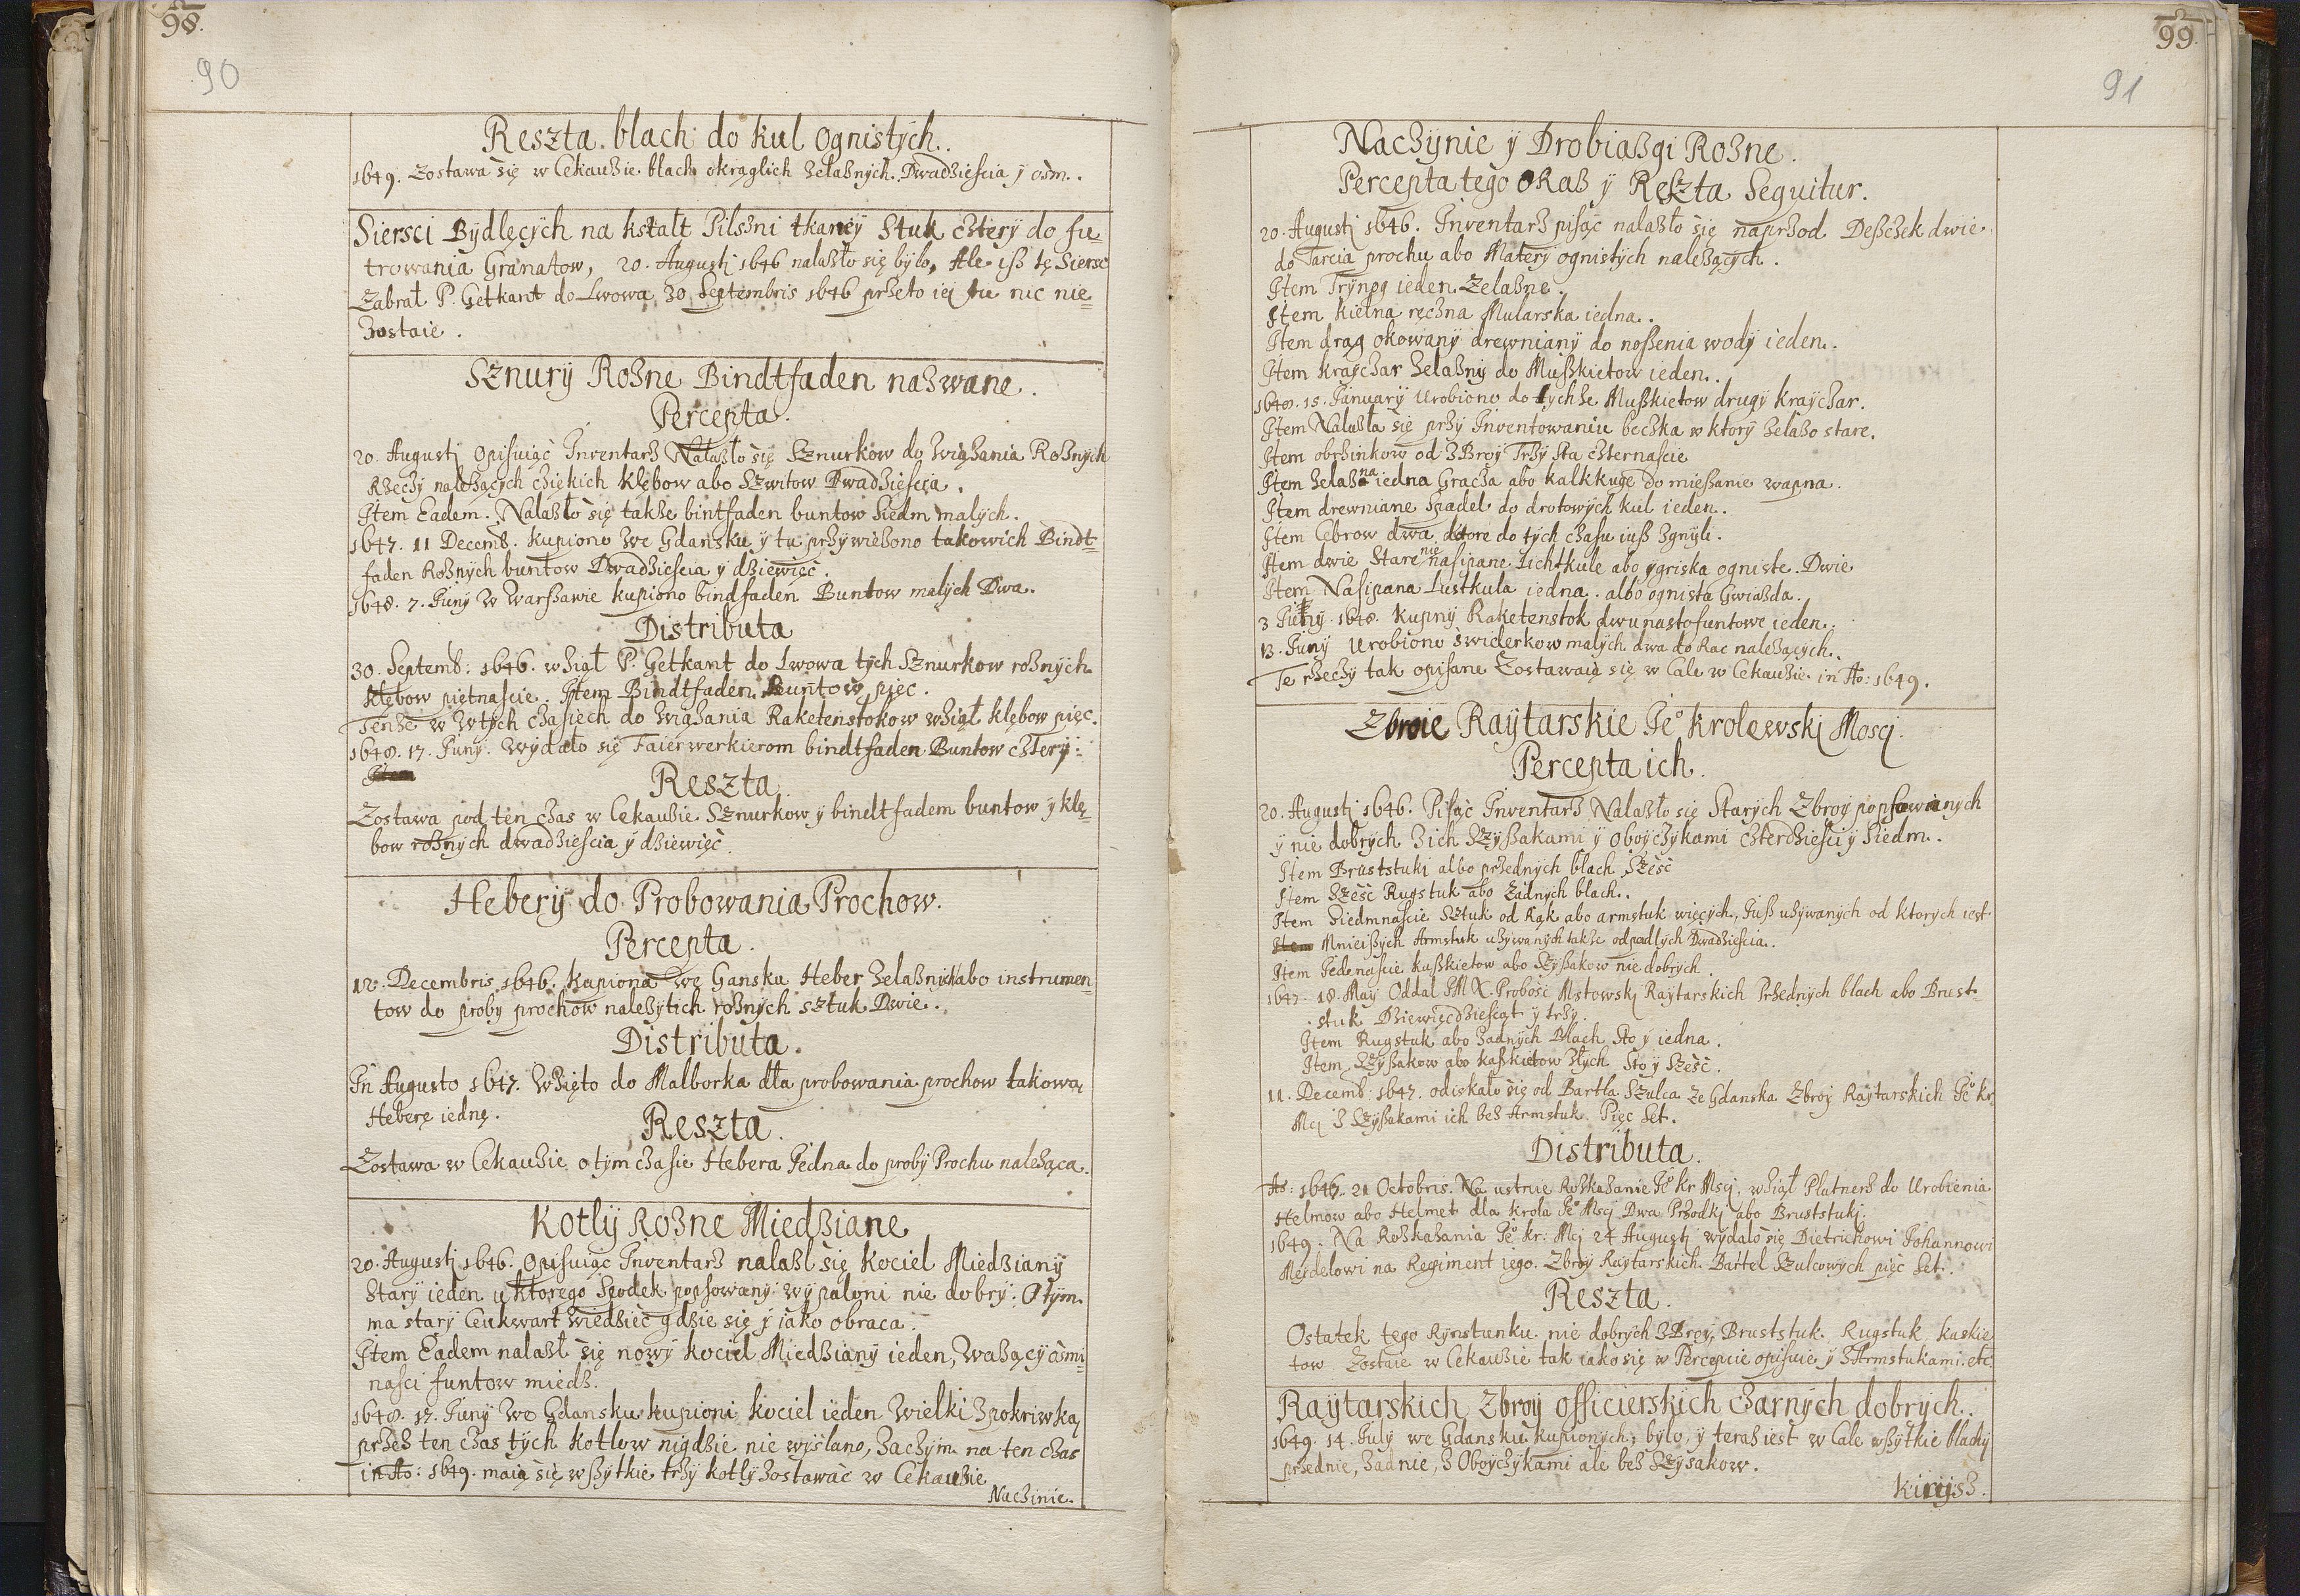 98.
90
Reszta blach do kul ognistych.
1649. Zostawa się w Cekauzie blach okrąglich żelaznych. Dwadziescia y osm.
Siersci Bydlęcych na kstałt Pilszni tkaney Stuk cztery do fu-
trowania Granatow, 20. Augusti 1646 nalazło się było, Ale isz tę Siersc
Zabrał P. Getkant do Lwowa 30 Septembris 1646 przeto iej tu nic nie
zostaie.
Sznury Rozne Bindtfaden nazwane.
Percepta.
20. Augusti Opisuiąc Inventarz Nalazło się Sznurkow do wiązania Roznych
Rzeczy należących czięnkich kłębow abo Szwitow Dwadziescia.
Item Eadem. Nalazło się także bintfaden buntow Siedm malych.
1647. 11 Decemb. kupiono We Gdansku y tu przywiezono takowich Bindt-
faden Roznych buntow Dwadziescia y dziewięć.
1648. 7. Juny W Warszawie kupiono bindfaden Buntow malych Dwa.
Distributa
30. Septemb: 1646. wziął P. Getkant do Lwowa tych Sznurkow roznych
kłębow piętnascie. Item Bindtfaden Buntow pięc.
Tenże w tych czasiech do wiązania Raketenstokow wziął kłębow pięc.
1648. 17. Juny. Wydało się Faierwerkierom bindtfaden Buntow cztery.
Item
Reszta.
Zostawa pod ten czas w Cekauzie Sznurkow y bindtfadem buntow y kłę-
bow roznych dwadziescia y dziewięć.
Hebery do Probowania Prochow.
Percepta.
12. Decembris 1646. Kupiona we Gansku Heber żelaznich abo instrumen-
tow do proby prochow nalezytich roznych sztuk Dwie.
Distributa.
In Augusto 1647. Wzięto do Malborka dla probowania prochow takową
Heberę iednę.
Reszta.
Zostawa w Cekauzie o tym czasie Hebera Iedna do proby Prochu należąca.
Kotly Rozne Miedziane
20. Augusti 1646. Opisuiąc Inventarz nalazl się kociel Miedziany
Stary ieden u ktorego Spodek popsowany wypaloni nie dobry: O tym
ma stary Ceukwart wiedzieć gdzie się y iako obraca.
Item Eadem nalazl się nowy kociel Miedziany ieden, Ważący osmi-
nasci funtow miedz.
1648. 17. Juny We Gdansku kupioni kociel ieden Wielki z pokriwką
przez ten czas tych kotlow nigdzie nie wyslano, zaczym na ten czas
in Ao: 1649. maią się wszytkie trzy kotly zostawac w Cekauzie
Naczinie.
99.
91
Naczynie y Drobiazgi Rozne.
Percepta tego oraz y Reszta Sequitur.
20. Augusti 1646. Inventarz pisąc nalazło się naprzod Deszczek dwie
do Tarcia prochu abo Matery ognistych należących.
Item Trynog ieden Zelazne.
Item kielna ręczna Mularska iedna.
Item drąg okowany drewniany do noszenia wody ieden.
Item kraychar żelazny do Muszkietow ieden.
1648. 15. January Urobiono do tychże Muszkietow drugy kraychar.
Item Nalazła się przy Inventowaniu beczka w ktory żelazo stare.
Item obrzinkow od zbroy Trzy Sta czternascie
Item żelazna iedna Gracza abo kalkkuge do mieszanie wapna.
Item drewniane Spadel do drotowych kul ieden.
Item Cebrow dwa, ktore do tych czasu iusz zgnyli.
Item dwie Stare nie nasipane Lichtkule abo ygriska ogniste. Dwie
Item Nasipana Lustkula iedna albo ognista Gwiazda.
3 Juny 1648. kupny Raketenstok dwunastofuntowe ieden.
13. Juny Urobiono swiderkow malych dwa do Rac należących.
Te rzeczy tak opisane Zostawaią się w Cale w Cekauzie in Ao: 1649.
Zbroie Raytarskie Je° krolewski Mosci.
Percepta ich.
20. Augusti 1646. Pisąc Inventarz Nalazło się Starych Zbroy popsowanych
y nie dobrych z ich Szyszakami y oboyczykami czterdziesci y Siedm.
Item Bruststuki albo przednych blach Szesć
Item Szesć Rugstuk abo Zadnych blach.
Item Siedmnascie Sztuk od Rąk abo armstuk więcych, Jusz używanych od ktorych iest
Item Mnieiszych Armstuk używanych także odpadlych Dwadziescia.
Item Jedenascie kaszkietow abo Szyszakow nie dobrych.
1647. 18. May Oddal JM X. Probosc Mstowski Raytarskich Przednych blach abo Brust-
stuk Dziewięcdziesiąt y trzy.
Item Rugstuk abo Zadnych Blach Sto y iedna.
Item Szyszakow abo kaszkietow złych Sto y Szesć.
11. Decemb: 1647. odiskało się od Bartla Szulca ze Gdanska Zbroy Raytarskich Je° kr
Mci z Szyszakami ich bez Armstuk Pięc Set.
Distributa.
Ao: 1646. 21 Octobris. Na ustnie Rozkazanie Je° kr Msci, wziął Platnerz do Urobienia
Helmow abo Helmet dla krola Je° Msci Dwa Przodki abo Bruststuki.
1649. Na Rozkazania Je° kr: Mci 24 Augusti wydało się Dietrichowi Johannowi
Meydelowi na Regiment iego Zbroy Raytarskich Bartel Szulcowych pięc Set.
Reszta.
Ostatek tego Rynstunku nie dobrych Zbroy, Bruststuk Rugstuk kaskie
tow Zostaie w Cekauzie tak iako się w Percepcie opisuie y z Armstukami. etc.
Raytarskich Zbroy officierskich czarnych dobrych.
1649. 14. July we Gdansku kupionych, bylo, y teraz iest w Cale wszytkie blachy
przednie, zadnie, z Oboyczykami ale bez Szysakow.
Kirysz.